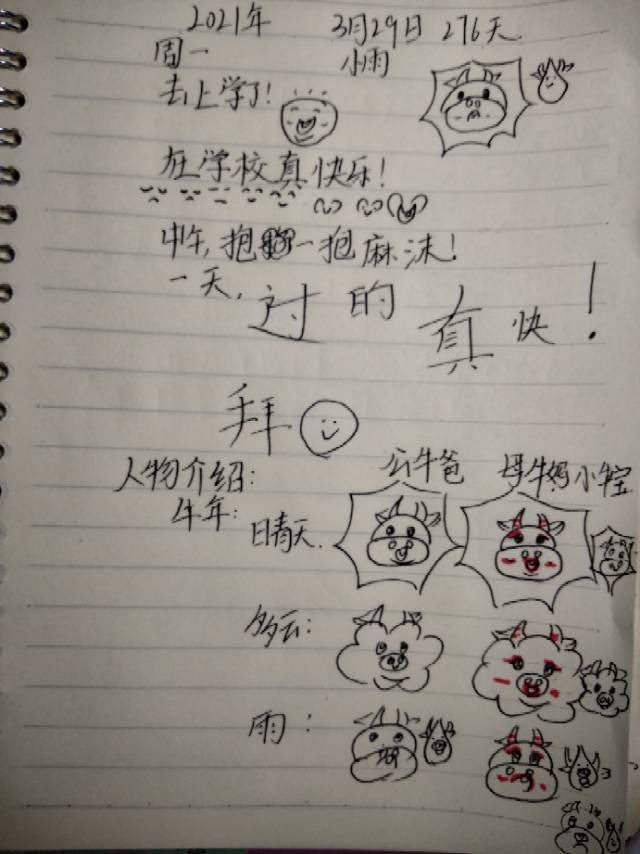 2021年 3月29日 276天
周一 小雨
去上学了!
在学校真快乐!
中午,抱一抱麻沫!
一天,过的真快!
拜
人物介绍: 公牛爸 母牛妈 小牛宝
牛年: 日晴天.
多云:
雨: